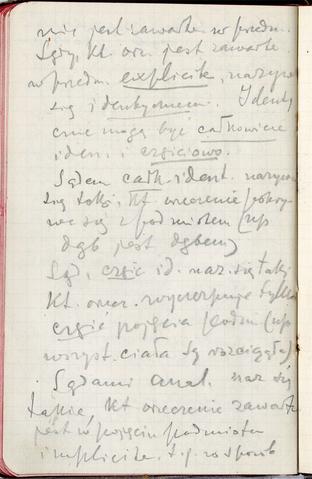 nie jest zawarte w podm.
Sądy, kt. orz. jest zawarte
w podm. explicite, nazywa
się identycznemi. Identy
czne mogą być całkowicie
iden. i częściowo.
Sądem całk. ident. nazywa
się taki, kt. orzeczenie pokry
wa się z podmiotem (np
dąb jest dębem)
Sąd. część id. naz. się taki
kt. orzecz. wyczerpuje tylko
część pojęcia podm (np
wszyst. ciała są rozciągłe)
Sądami anal. naz się
takie, kt orzeczenie zawarte
jest w pojęciu podmiotu
implicite. t.j. w sposób